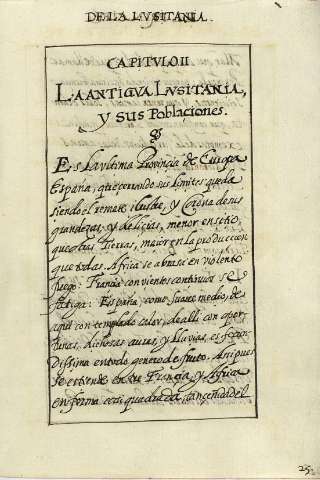 DE LA LVSITANIA.
CAPITVLO.II
LA ANTIGVA LVSITANIA,
y sus Poblaciones.
Es la vltima Provincia de Europa
España, que cerrando sus limites queda
siendo el remate ilustre, y Corona de sus
grandezas, y delicias, menor en sitio
que otras Tierras, maior en la produccion
que todas. Africa se abrase en violento
fuego. Francia con vientos continuos se
fatiga: España, como suave medio, de
aqui con templado calor, de alli con oportunas,
dichosas auras, y lluvias, es fecun
dissima en todo genero de fruto. Assi pues
se estiende entre Francia, y Africa
en forma casi quadrada,
25.